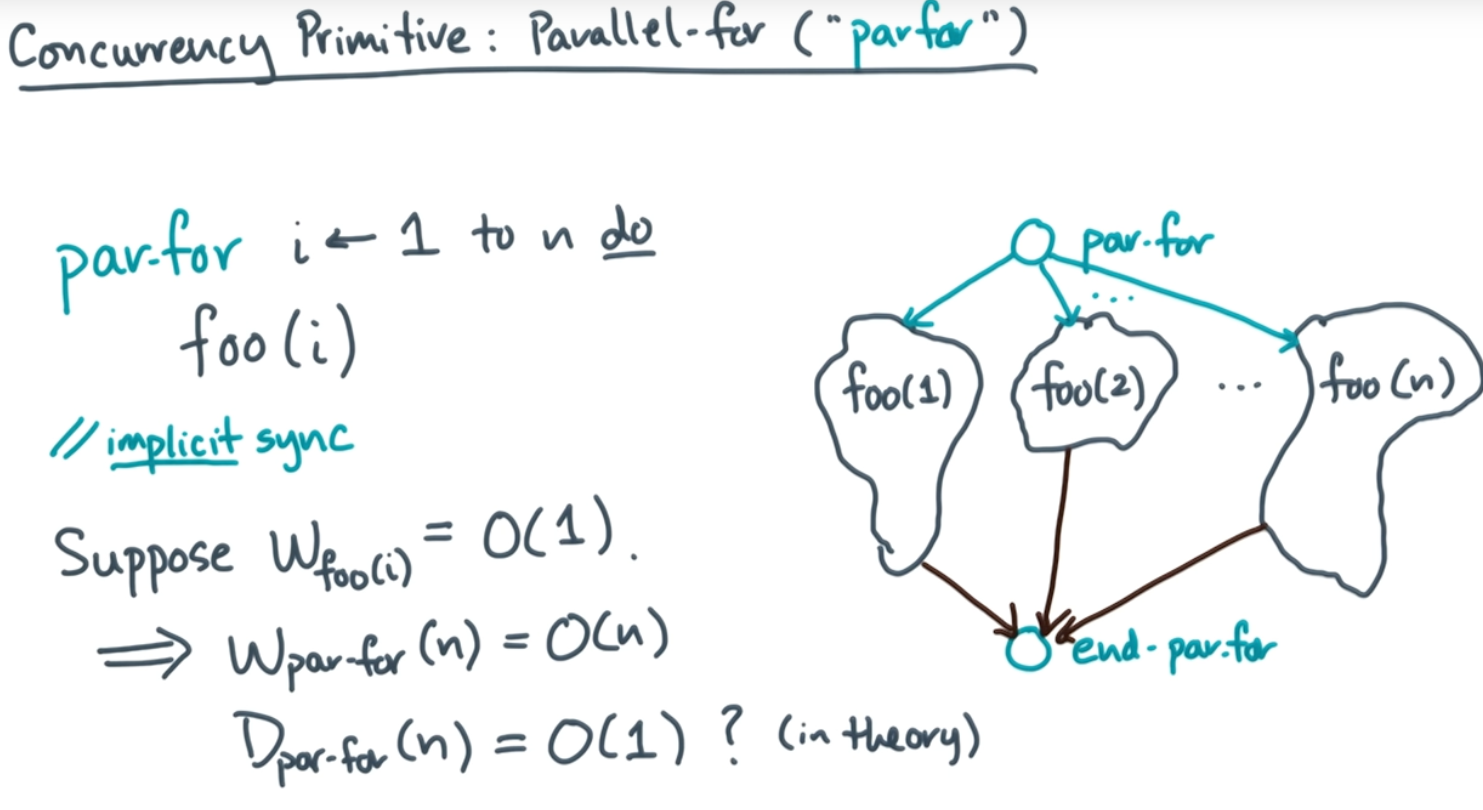 Concurrency Primitive: Parallel-for ("par-for")
par-for i ← 1 to n do
foo(i)
// implicit sync
Suppose W_foo(i) = O(1).
⟹ W_par-for(n) = O(n)
D_par-for(n) = O(1) ? (in theory)
par-for
...
foo(1)
foo(2)
...
foo(n)
end-par-for